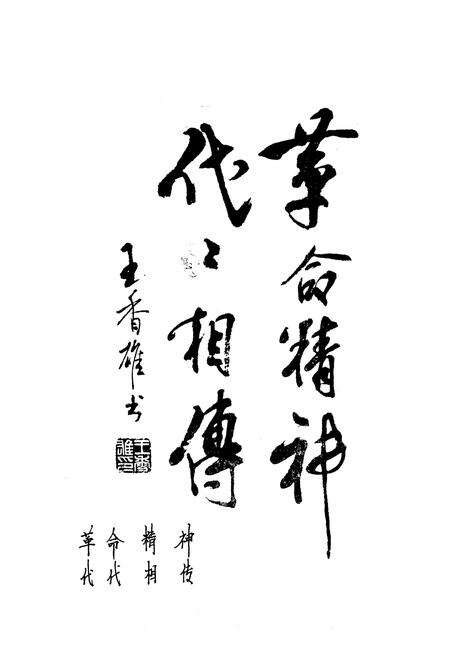 革命精神
代〻相傳
王香雄书
王香雄印
革命精神
代代相传